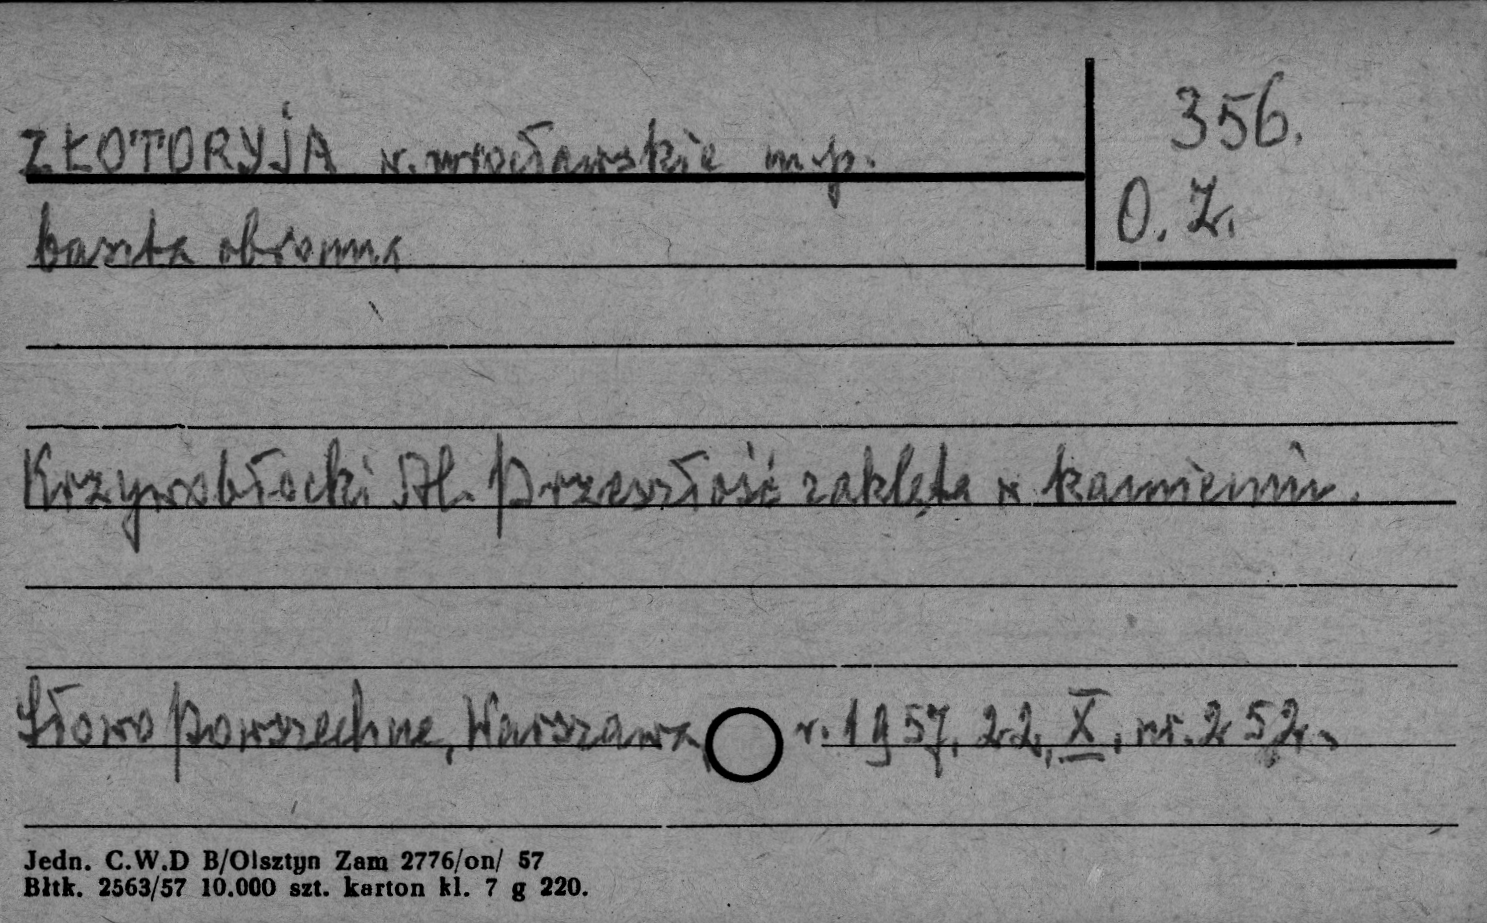 ZŁOTORYJA w. wrocławskie m.p.
356.
O. Z.
baszta obronna
Krzywobłocki Al. Przeszłość zaklęta w kamieniu.
Słowo Powszechne, Warszawa, r. 1957, 22, X, nr. 252.
Jedn. C.W.D B/Olsztyn Zam 2776/on/ 57
Bltk. 2563/57 10.000 szt. karton kl. 7 g 220.